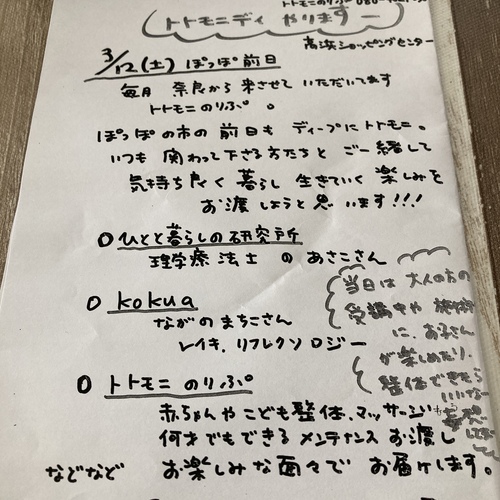 トトモニのりふ
トトモニディ やります
高浜ショッピングセンター
3/12(土) ぽっぽ前日
毎月 奈良から 来させて いただいてます
トトモニのりふ。
ぽっぽの市の 前日も ディープに トトモニ。
いつも 関わって下さる方たちと ご一緒して
気持ち良く 暮らし 生きていく 楽しみを
お渡ししようと思います!!!
○ひとと暮らしの研究所
理学療法士 の あさこさん
○ kokua
ながの まちこさん
レイキ、リフレクソロジー
当日は 大人の方の
受講中や 施術中
に、お子さん
が楽しめたり、
整体できたら
いいなー
○ トトモニ のりふ
赤ちゃんやこども整体、マッサージ
何才でもできる メンテナンス お渡し
などなど お楽しみな面々で お届けします。